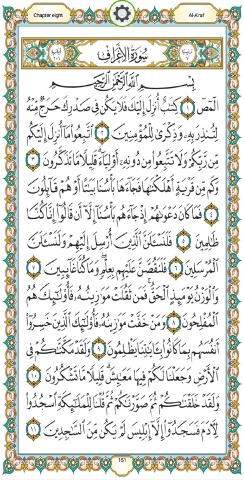 Chapter eight
Al-A'raf
سُورَةُ الْأَعْرَافِ
بِسْمِ اللَّهِ الرَّحْمَٰنِ الرَّحِيمِ
الٓمٓصٓ ١ كِتَٰبٌ أُنزِلَ إِلَيْكَ فَلَا يَكُن فِى صَدْرِكَ حَرَجٌ مِّنْهُ
لِتُنذِرَ بِهِۦ وَذِكْرَىٰ لِلْمُؤْمِنِينَ ٢ ٱتَّبِعُوا۟ مَآ أُنزِلَ إِلَيْكُم
مِّن رَّبِّكُمْ وَلَا تَتَّبِعُوا۟ مِن دُونِهِۦٓ أَوْلِيَآءَ قَلِيلًا مَّا تَذَكَّرُونَ ٣
وَكَم مِّن قَرْيَةٍ أَهْلَكْنَٰهَا فَجَآءَهَا بَأْسُنَا بَيَٰتًا أَوْ هُمْ قَآئِلُونَ
٤ فَمَا كَانَ دَعْوَىٰهُمْ إِذْ جَآءَهُم بَأْسُنَآ إِلَّآ أَن قَالُوٓا۟ إِنَّا كُنَّا
ظَٰلِمِينَ ٥ فَلَنَسْـَٔلَنَّ ٱلَّذِينَ أُرْسِلَ إِلَيْهِمْ وَلَنَسْـَٔلَنَّ
ٱلْمُرْسَلِينَ ٦ فَلَنَقُصَّنَّ عَلَيْهِم بِعِلْمٍ وَمَا كُنَّا غَآئِبِينَ ٧
وَٱلْوَزْنُ يَوْمَئِذٍ ٱلْحَقُّ فَمَن ثَقُلَتْ مَوَٰزِينُهُۥ فَأُو۟لَٰٓئِكَ هُمُ
ٱلْمُفْلِحُونَ ٨ وَمَنْ خَفَّتْ مَوَٰزِينُهُۥ فَأُو۟لَٰٓئِكَ ٱلَّذِينَ خَسِرُوٓا۟
أَنفُسَهُم بِمَا كَانُوا۟ بِـَٔايَٰتِنَا يَظْلِمُونَ ٩ وَلَقَدْ مَكَّنَّٰكُمْ فِى
ٱلْأَرْضِ وَجَعَلْنَا لَكُمْ فِيهَا مَعَٰيِشَ قَلِيلًا مَّا تَشْكُرُونَ ١٠
وَلَقَدْ خَلَقْنَٰكُمْ ثُمَّ صَوَّرْنَٰكُمْ ثُمَّ قُلْنَا لِلْمَلَٰٓئِكَةِ ٱسْجُدُوا۟
لِـَٔادَمَ فَسَجَدُوٓا۟ إِلَّآ إِبْلِيسَ لَمْ يَكُن مِّنَ ٱلسَّٰجِدِينَ ١١
151